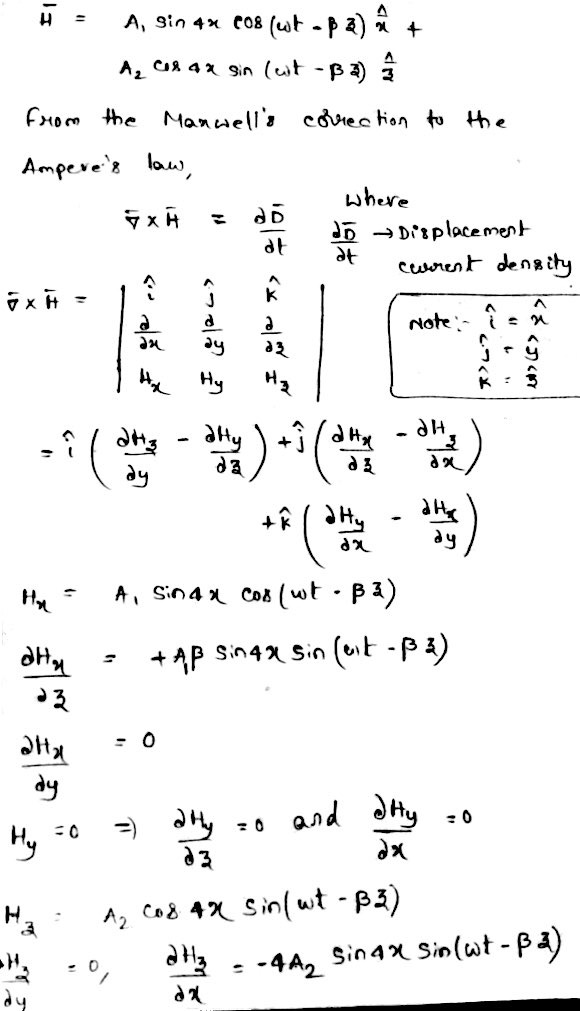 H̄ = A₁ sin 4x cos (ωt - βz) x̂ +
A₂ cos 4x sin (ωt - βz) ẑ
From the Maxwell's correction to the
Ampere's law,
∇̄ x H̄ = ∂D̄/∂t where
∂D̄/∂t → Displacement
current density
∇̄ x H̄ = | î ĵ k̂ |
| ∂/∂x ∂/∂y ∂/∂z |
| Hx Hy Hz |
Note:- î = x̂
ĵ = ŷ
k̂ = ẑ
= î ( ∂Hz/∂y - ∂Hy/∂z ) + ĵ ( ∂Hx/∂z - ∂Hz/∂x )
+ k̂ ( ∂Hy/∂x - ∂Hx/∂y )
Hx = A₁ sin 4x cos (ωt - βz)
∂Hx/∂z = + A₁β sin 4x sin (ωt - βz)
∂Hx/∂y = 0
Hy = 0 ⇒ ∂Hy/∂z = 0 and ∂Hy/∂x = 0
Hz = A₂ cos 4x sin (ωt - βz)
∂Hz/∂y = 0, ∂Hz/∂x = -4A₂ sin 4x sin (ωt - βz)